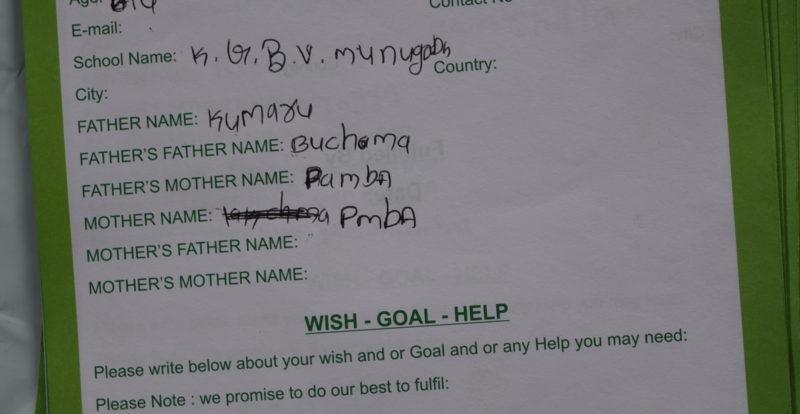 E-mail:
School Name: K. G. B. V. munugodu
Country:
City:
FATHER NAME: Kumaru
FATHER'S FATHER NAME: Buchama
FATHER'S MOTHER NAME: PambA
MOTHER NAME: PmbA
MOTHER'S FATHER NAME:
MOTHER'S MOTHER NAME:
WISH - GOAL - HELP
Please write below about your wish and or Goal and or any Help you may need:
Please Note : we promise to do our best to fulfil: